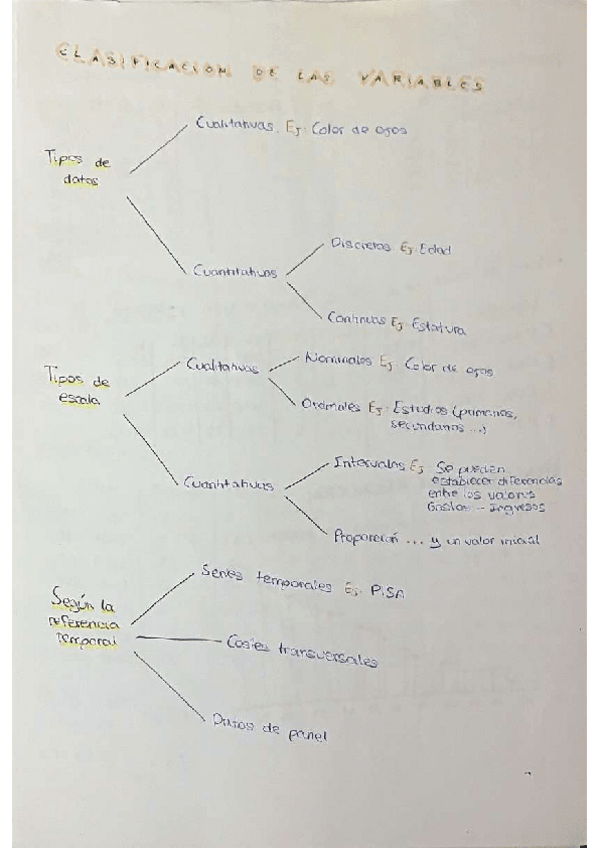 CLASIFICACION DE LAS VARIABLES
Cualitativas. Ej: Color de ojos
Tipos de
datos
Cuantitativos
Discretas Ej: Edad
Continuas Ej Estatura
Tipos de
escala
Cualitativas
Nominales Ej: Color de ojos
Ordinales Ej: Estudios (primarios,
secundarios ...)
Cuantitativas
Intervalos Ej Se pueden
establecer diferencias
entre los valores
Gastos - Ingresos
Proporción ... y un valor inicial
Según la
referencia
temporal
Series temporales Ej:
Cortes transversales
Datos de panel